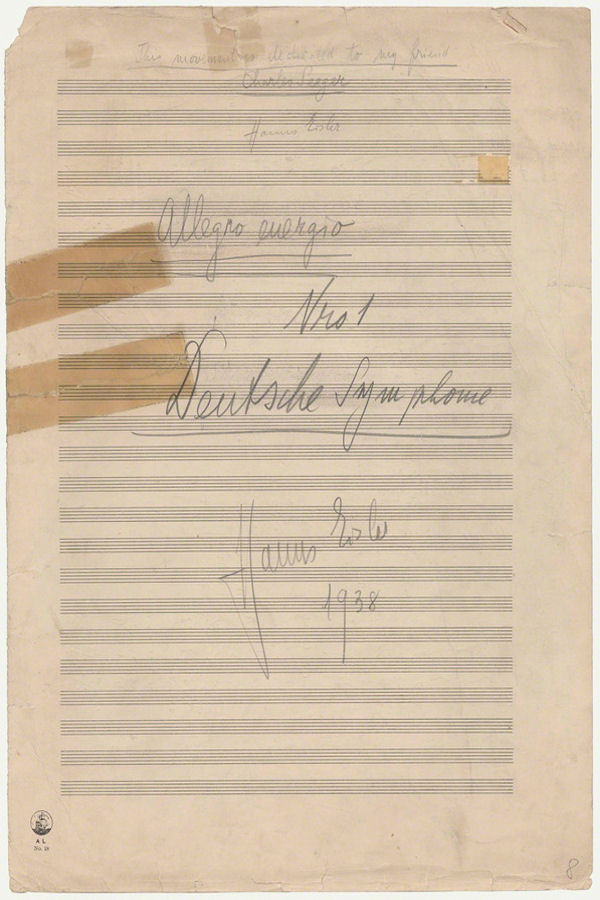 This movement is dedicated to my friend
Charles Seeger
Hanns Eisler
Allegro energio
Nro 1
Deutsche Symphonie
Hanns Eisler
1938
A L
No. 18
8